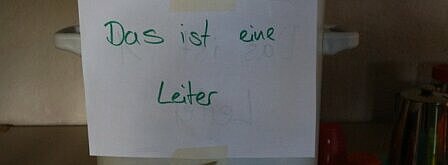 Das ist eine
Leiter